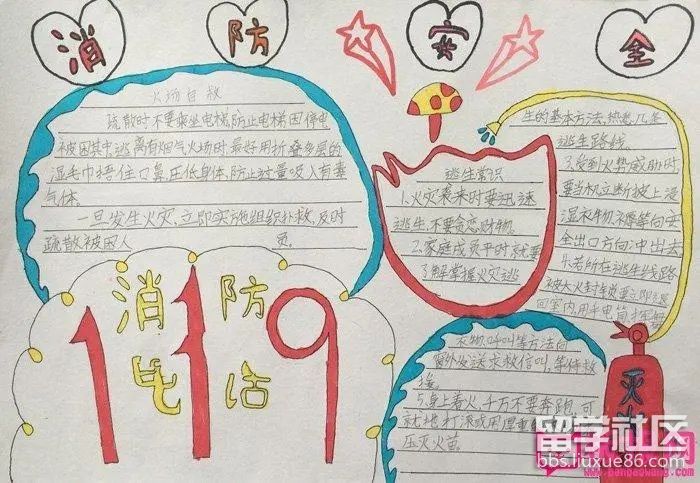 消防安全
火场自救
疏散时不要乘坐电梯,防止电梯因停电
被困其中,逃离有烟气火场时最好用折叠多层的
湿毛巾捂住口鼻压低身体,防止过量吸入有毒
气体.
一旦发生火灾,立即实施组织扑救,及时
疏散被困人员.
逃生常识
1.火灾袭来时要迅速
逃生,不要贪恋财物.
2.家庭成员平时就要
了解掌握火灾逃
生的基本方法,熟悉几条
逃生路线.
3.受到火势威胁时,
要当机立断披上浸
湿衣物,
全出口方向冲出去
4.若所在逃生线路
被大火封锁要立即退
回室内,用手电筒挥舞
衣物,呼叫等方法向
窗外发送求救信叫,等待救
援.
5.身上着火,千万不要奔跑,可
就地打滚或用厚重
压灭火苗.
消防
电话
119
灭火
留学社区
bbs.liuxue86.com
www.benpaowang.com